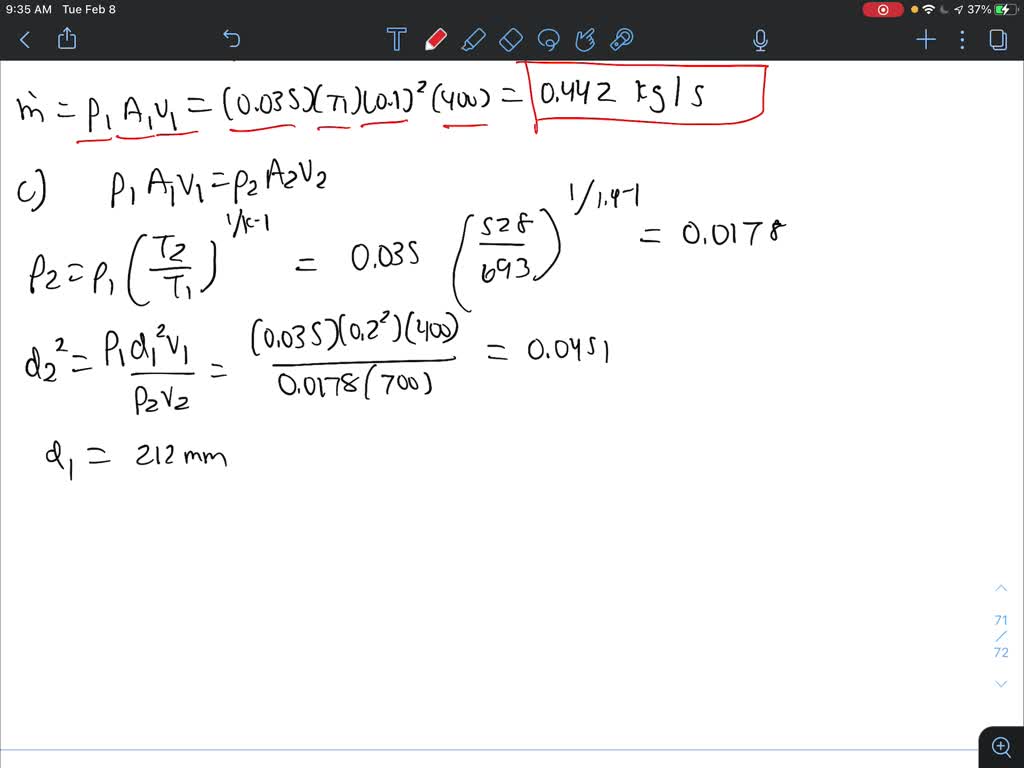 9:35 AM Tue Feb 8 37%
ṁ = ρ₁ A₁ v₁ = (0.035)(π)(0.1)² (400) = 0.442 kg/s
c) ρ₁ A₁ v₁ = ρ₂ A₂ v₂
ρ₂ = ρ₁ (T₂/T₁)^(1/k-1) = 0.035 (528/693)^(1/1.4-1) = 0.0178
d₂² = ρ₁ d₁² v₁ / ρ₂ v₂ = (0.035)(0.2²)(400) / 0.0178(700) = 0.0451
d₁ = 212 mm
71
/
72